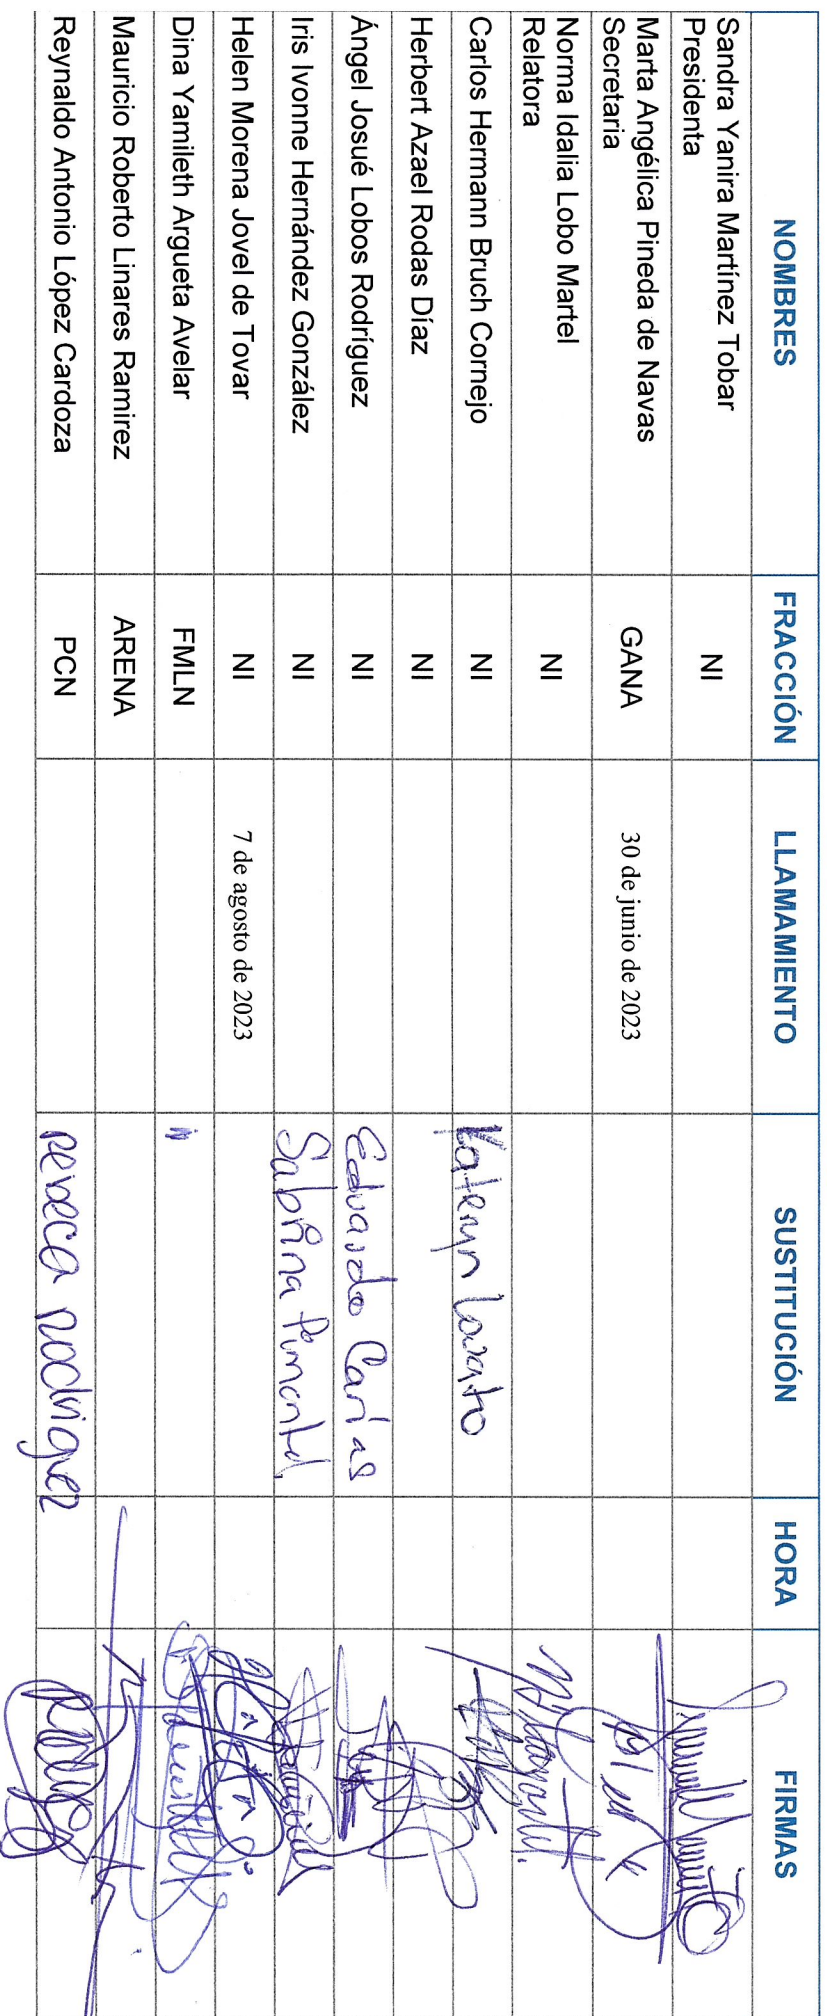 NOMBRES FRACCIÓN LLAMAMIENTO SUSTITUCIÓN HORA FIRMAS
Sandra Yanira Martínez Tobar
Presidenta NI
Marta Angélica Pineda de Navas
Secretaria GANA 30 de junio de 2023
Norma Idalia Lobo Martel
Relatora NI
Carlos Hermann Bruch Cornejo NI Kateryn Lovato
Herbert Azael Rodas Díaz NI
Ángel Josué Lobos Rodríguez NI Eduardo Carías
Iris Ivonne Hernández González NI Sabrina Pimentel
Helen Morena Jovel de Tovar NI 7 de agosto de 2023
Dina Yamileth Argueta Avelar FMLN
Mauricio Roberto Linares Ramirez ARENA
Reynaldo Antonio López Cardoza PCN Rebeca Rodriguez